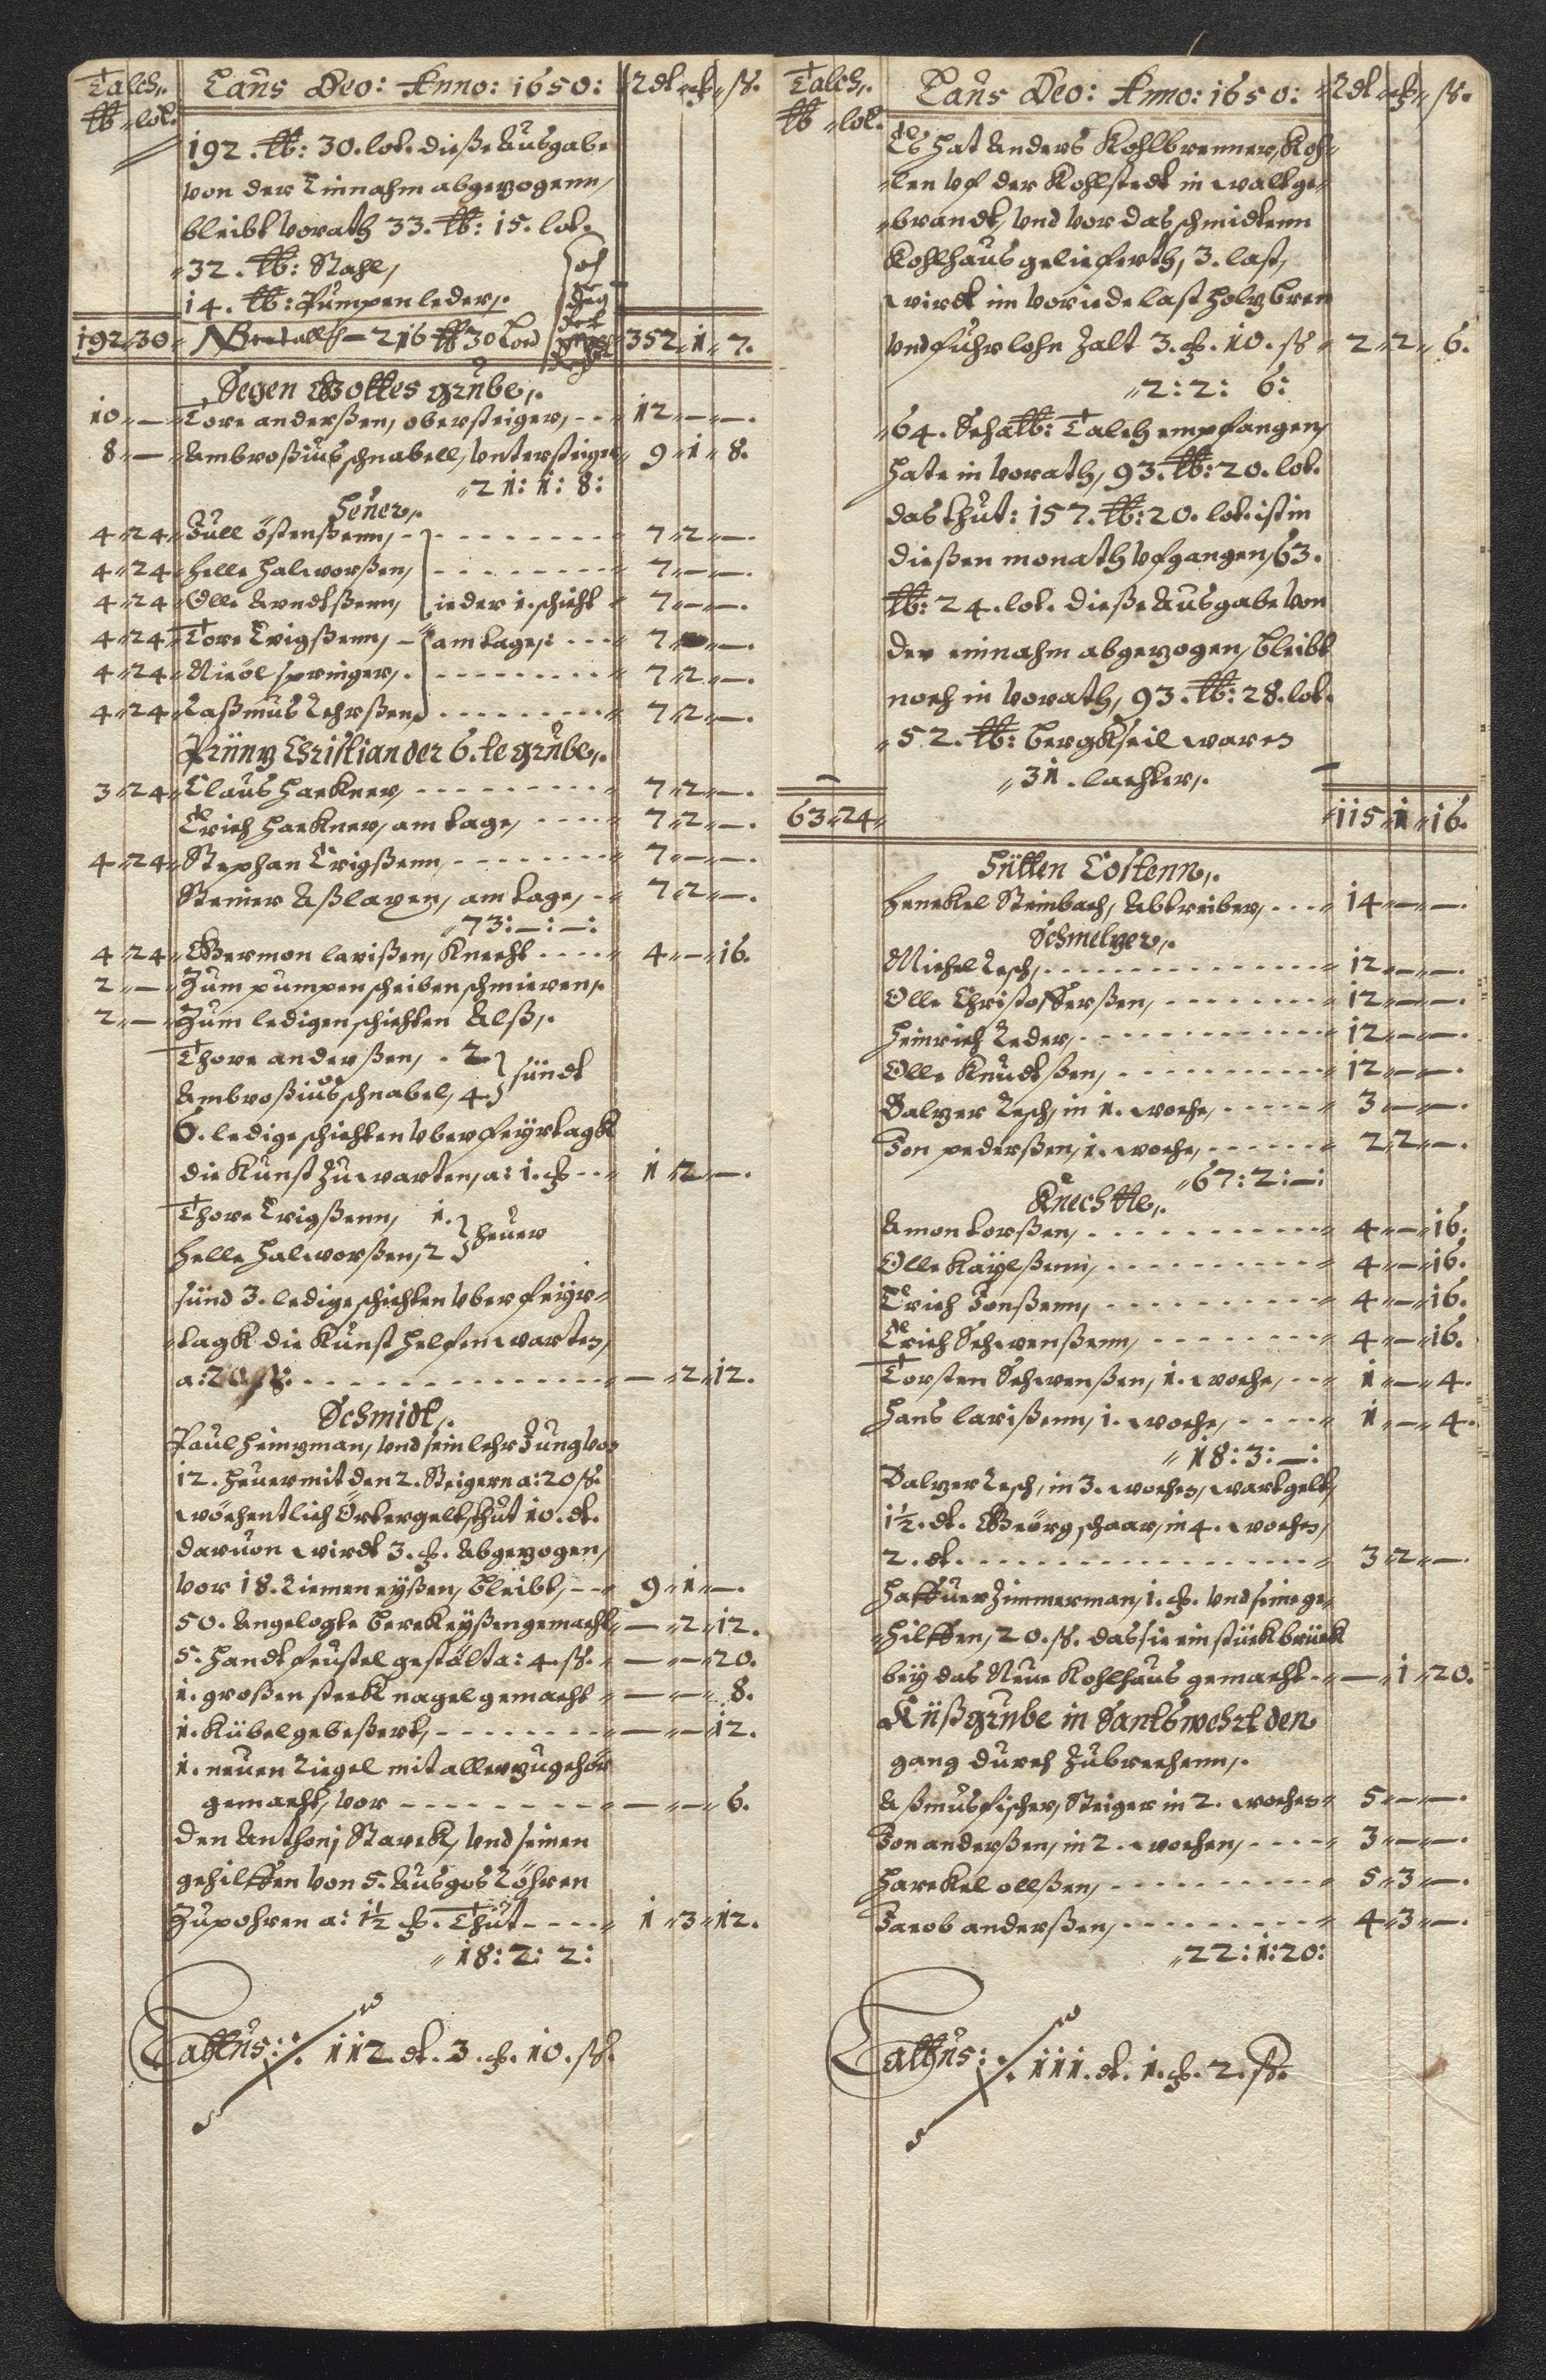 Talch,. Laus Deo: Anno: 1650: Rdt ſ.
℔ lot.
192. ℔: 30. lot. dieße Ausgabe
von der Einnahm abgezogenn,
bleibt Vorath 33. ℔: 15. lot.
32. ℔: Stahl,
14. ℔: Pumpenleder,.
192 30 216 ℔ 30 352 1 7.
Segen Gottes grube,.
10 — Tore anderßen, obersteiger, 12 — —.
8 — Ambroßius schnabell, Untersteiger 9 1 8.
21: 1: 8:
Heuer,.
4 24 Jull östenßenn, 7 2 —.
4 24 Helle Halvorßen, 7 — —.
4 24 Olle Arndtßenn, ieder 1. schicht 7 — —.
4 24 Tore Erigßenn, am tage,: 7 — —.
4 24 Nicöl springer, 7 2 —.
4 24 Raßmus Lehrßen, 7 2 —.
Prünz Christian der 6. te grube,.
3 24 Claus Hackner, 7 2 —.
Erich Hackner, am tage, 7 2 —.
4 24 Stephan Erigßenn, 7 — —.
Steiner Aßlagen, am tage, 7 2 —.
73: —: —:
4 24 Germon larißen, Knecht 4 — 16.
2 — Zum pumpen scheiben schmieren,.
2 — Zum ledigen schichten Alß,.
Thore anderßen, 2
Ambroßius schnabel, 4 sündt
6. ledige schichten Vber feyrtagk
die Kunst zu warten, a: 1. ₰ 1 2 —.
Thore Erigßenn, 1.
Helle Halvorßen, 2 heuer
sünd 3. ledige schichten Vber feyr
tagk die Kunst helfen warten,
a: 20 ſ. — 2 12.
Schmidt,.
Paul Heinzman, Vnd sein lehr Jung von
12. Heuer mit den 2. Steigern a: 20 ſ.
wöchentlich Örtergelt, thut 10. dt.
daruon wirdt 3. ₰. Abgezogen,
vor 18. Riemen eyßen, bleibt, 9 1 —.
50. Angelogte bereKeyßen gemacht — 2 12.
5. Handtfeustel gestält a: 4. ſ. — — 20.
1. großen steck nagel gemacht — — 8.
1. Kübel gebeßert, — — 12.
1. neuen Riegel mit aller zugehör
gemacht, vor — — 6.
Den Anthonj Starck, Vnd seinen
gehilffen von 5. Ausgos Röhren
Zupohren a: 1½ ₰. Thut 1 3 12.
18: 2: 2:
Lattus: 112. dt. 3. ₰. 10. ſ.
Talch,. Laus Deo: Anno: 1650: Rdt ſ.
℔ lot.
Es hat Anders Kohlbrenner, Koh
len Vf der Kohlstedt in walt ge
brandt, Vnd vor das schmidtenn
Kohlhaus geliefferth, 3. last,
wirdt im vor iede last holz bren
Vnd fuhrlohn Zalt 3. ₰. 10. ſ 2 2 6.
2: 2: 6:
64. ℔: Talch empfangen,
hate in Vorath, 93. ℔: 20. lot.
das thut: 157. ℔: 20. lot. ist in
dießen monath Vfgangen, 63.
℔: 24. lot. dieße Ausgabe von
der einnahm abgezogen, bleibt
noch in Vorath, 93. ℔: 28. lot.
52. ℔: bergKseil waren
31. lachter,.
63 24 115 1 16.
Hütten Costenn,.
Henckel Steinbach, Abtreiber, 14 — —.
Schmelzer,.
Michel Resch, 12 — —.
Olle Christofferßen, 12 — —.
Heinrich Reder, 12 — —.
Olle Knudtßen, 12 — —.
Balzer Resch, in 1. woche, 3 — —.
Jon pederßen, 1. woche, 2 2 —.
67: 2: —:
Knechtte,.
Amon torßen, 4 — 16.
Olle Kaylßenn, 4 — 16.
Erich Jonßenn, 4 — 16.
Erich Schwenßenn, 4 — 16.
Torsten Schwenßen, 1. woche, 1 — 4.
Hans larißenn, 1. woche, 1 — 4.
18: 3: —:
Balzer Resch, in 3. wochen, wartgelt,
1½. dt. Geörg schaar, in 4. wochen,
2. dt. 3 2 —.
Haffuer Zimmerman, 1. ₰. Vnd seine ge
hilffen, 20. ſ. das sie ein stück brück
bey das Neue Kohlhaus gemacht — 1 20.
Küßgrube in Santswehrt den
gang durch Zubrechenn,.
Aßmus fischer, Steiger in 2. wochen 5 — —.
Jon anderßen, in 2. wochen, 3 — —.
Harckel ollßen, 5 3 —.
Jacob anderßen, 4 3 —.
22: 1: 20:
Lattus: 111. dt. 1. ₰. 2. ſ.